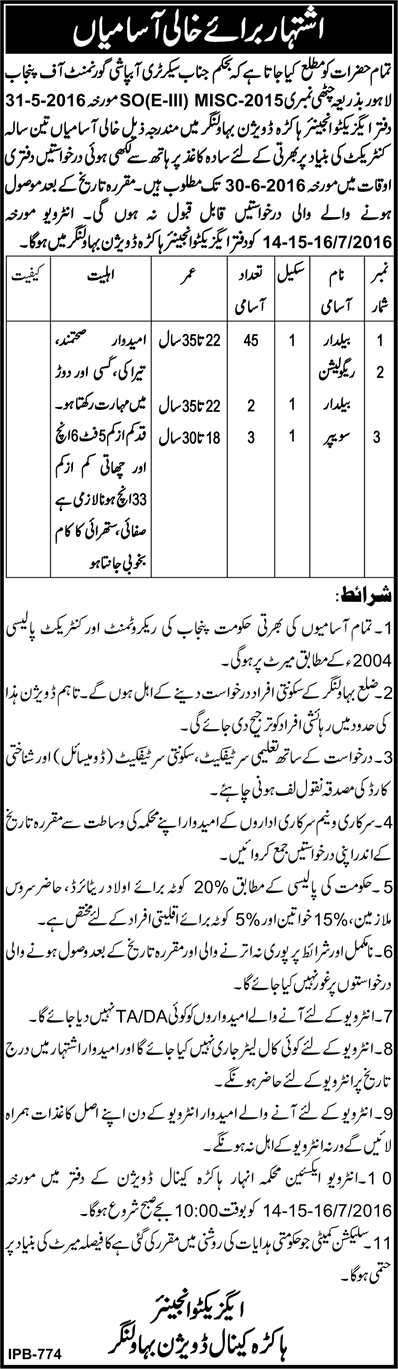 اشتہار برائے خالی آسامیاں
تمام حضرات کو مطلع کیا جاتا ہے کہ بحکم جناب سیکرٹری آبپاشی گورنمنٹ آف پنجاب
لاہور بذریعہ چٹھی نمبری SO(E-III) MISC-2015 مورخہ 31-5-2016
دفتر ایگزیکٹو انجینئر ہاکڑہ ڈویژن بہاولنگر میں مندرجہ ذیل خالی آسامیاں تین سالہ
کنٹریکٹ کی بنیاد پر بھرتی کے لئے سادہ کاغذ پر ہاتھ سے لکھی ہوئی درخواستیں دفتری
اوقات میں مورخہ 30-6-2016 تک مطلوب ہیں۔ مقررہ تاریخ کے بعد موصول
ہونے والے والی درخواستیں قابل قبول نہ ہوں گی۔ انٹرویو مورخہ
14-15-16/7/2016 کو دفتر ایگزیکٹو انجینئر ہاکڑہ ڈویژن بہاولنگر میں ہوگا۔
نمبر شمار نام آسامی سکیل تعداد آسامی عمر اہلیت کیفیت
1 بیلدار 1 45 22 تا 35 سال امیدوار صحتمند،
2 ریگولیشن تیراکی، کسی اور دوڑ
بیلدار 1 2 22 تا 35 سال میں مہارت رکھتا ہو۔
3 سویپر 1 3 18 تا 30 سال قد کم از کم 5 فٹ 6 انچ
اور چھاتی کم از کم
33 انچ ہونا لازمی ہے
صفائی، ستھرائی کا کام
بخوبی جانتا ہو
شرائط:
1۔ تمام آسامیوں کی بھرتی حکومت پنجاب کی ریکروٹمنٹ اور کنٹریکٹ پالیسی
2004ء کے مطابق میرٹ پر ہوگی۔
2۔ ضلع بہاولنگر کے سکونتی افراد درخواست دینے کے اہل ہوں گے۔ تاہم ڈویژن ہذا
کی حدود میں رہائشی افراد کو ترجیح دی جائے گی۔
3۔ درخواست کے ساتھ تعلیمی سرٹیفکیٹ، سکونتی سرٹیفکیٹ (ڈومیسائل) اور شناختی
کارڈ کی مصدقہ نقول لف ہونی چاہئے۔
4۔ سرکاری و نیم سرکاری اداروں کے امیدوار اپنے محکمہ کی وساطت سے مقررہ تاریخ
کے اندر اپنی درخواستیں جمع کروائیں۔
5۔ حکومت کی پالیسی کے مطابق 20% کوٹہ برائے اولاد ریٹائرڈ، حاضر سروس
ملازمین، 15% خواتین اور 5% کوٹہ برائے اقلیتی افراد کے لئے مختص ہے۔
6۔ نامکمل اور شرائط پر پوری نہ اترنے والی اور مقررہ تاریخ کے بعد وصول ہونے والی
درخواستوں پر غور نہیں کیا جائے گا۔
7۔ انٹرویو کے لئے آنے والے امیدواروں کو کوئی TA/DA نہیں دیا جائے گا۔
8۔ انٹرویو کے لئے کوئی کال لیٹر جاری نہیں کیا جائے گا اور امیدوار اشتہار میں درج
تاریخ پر انٹرویو کے لئے حاضر ہونگے۔
9۔ انٹرویو کے لئے آنے والے امیدوار انٹرویو کے دن اپنے اصل کاغذات ہمراہ
لائیں گے ورنہ انٹرویو کے اہل نہ ہونگے۔
10۔ انٹرویو ایکسین محکمہ انہار ہاکڑہ کینال ڈویژن کے دفتر میں مورخہ
14-15-16/7/2016 کو بوقت 10:00 بجے صبح شروع ہوگا۔
11۔ سلیکشن کمیٹی جو حکومتی ہدایات کی روشنی میں مقرر کی گئی ہے کا فیصلہ میرٹ کی بنیاد پر
حتمی ہوگا۔
ایگزیکٹو انجینئر
ہاکڑہ کینال ڈویژن بہاولنگر
IPB-774